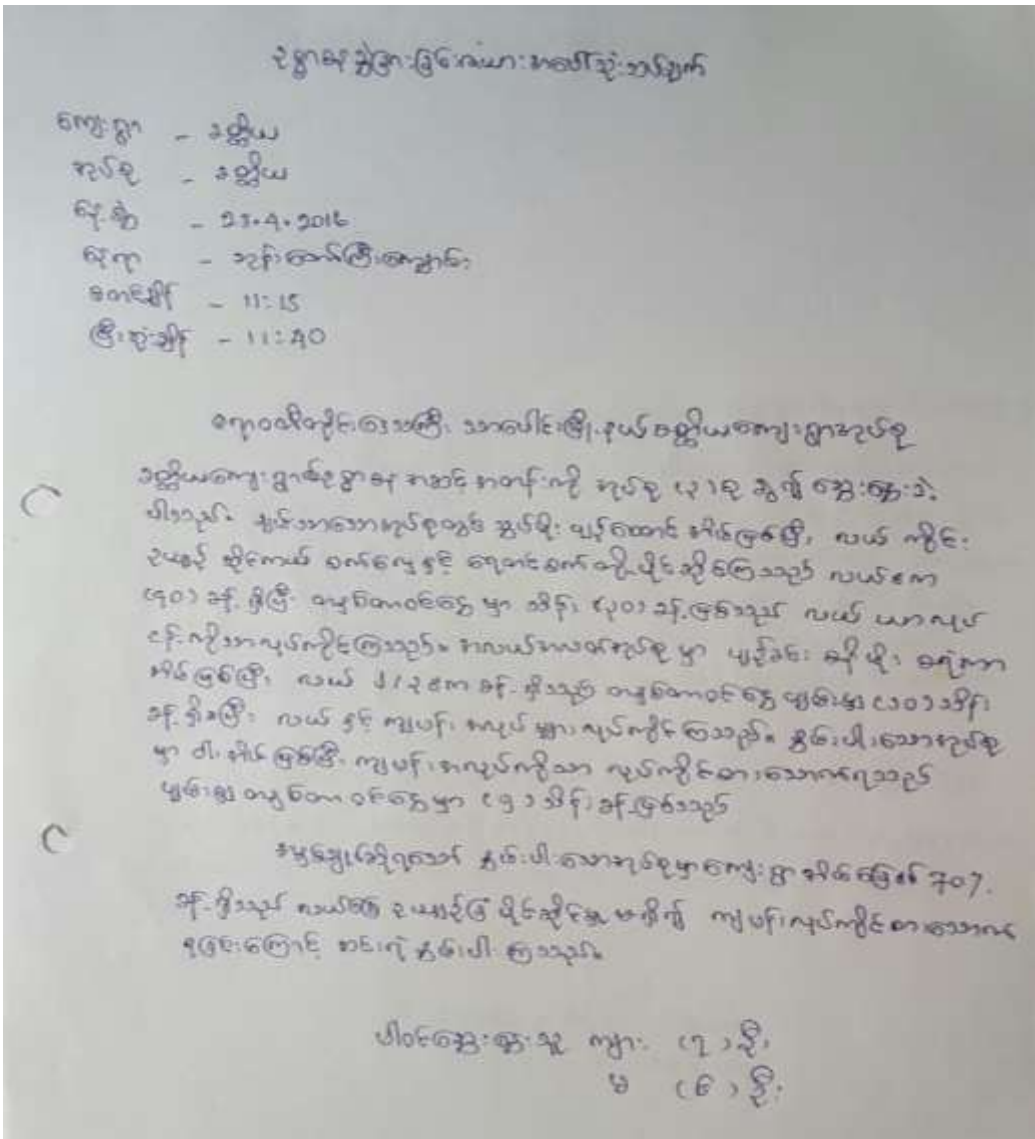 ဥစ္စာဓန ခွဲခြားခြင်းလေ့လာ အပေါ်သုံးသပ်ချက်
ကျေးရွာ - ခတ္တိယ
အုပ်စု - ခတ္တိယ
နေ့စွဲ - 23.4.2016
နေရာ - ဘုန်းတော်ကြီးကျောင်း
စတင်ချိန် - 11:15
ပြီးဆုံးချိန် - 11:40
ဧရာဝတီတိုင်းဒေသကြီး သာပေါင်းမြို့နယ် ခတ္တိယကျေးရွာအုပ်စု
ခတ္တိယကျေးရွာ၏ ဥစ္စာဓန အဆင့်အတန်းကို အုပ်စု (၃) စု ခွဲ၍ ဆွေးနွေးခဲ့
ပါသည်။ ချမ်းသာသောအုပ်စုတွင် သွပ်မိုး ပျဉ်ထောင် အိမ်ဖြစ်ပြီး လယ် ကိုင်း
ဥယျာဉ် ဆိုင်ကယ် စက်လှေ နှင့် ရေတင်စက် တို့ပိုင်ဆိုင်ကြသည် လယ်ဧက
(၅၀) ခန့် ရှိပြီး တစ်နှစ်ဝင်ငွေ မှာ သိန်း (၃၀) ခန့်ဖြစ်သည် လယ် ယာလုပ်
ငန်းကိုသာလုပ်ကိုင်ကြသည်။ အလယ်အလတ်အုပ်စု မှာ ပျဉ်ခင်း ဓနိမိုး ထရံကာ
အိမ်ဖြစ်ပြီး လယ် ဧက ခန့် ရှိသည် တစ်နှစ်ဝင်ငွေ ပျမ်းမျှ (၁၀) သိန်း
ခန့် ရှိပြီး လယ် နှင့် ကျပန်း အလုပ် များ လုပ်ကိုင်ကြသည်။ နွမ်းပါးသောအုပ်စု
မှာ ဝါး အိမ်ဖြစ်ပြီး ကျပန်းအလုပ်ကိုသာ လုပ်ကိုင်စားသောက်ရသည်
ပျမ်းမျှ တစ်နှစ် ဝင်ငွေမှာ (၅) သိန်း ခန့်ဖြစ်သည်
ခြုံငုံသုံးသပ်ရသော် နွမ်းပါးသောအုပ်စုမှာကျေးရွာ အိမ်ခြေ၏ 70%
ခန့် ရှိသည် လယ်မြေ ဥယျာဉ်ခြံ ပိုင်ဆိုင်မှု မရှိ၍ ကျပန်းလုပ်ကိုင်စားသောက်
ရခြင်းကြောင့် ဆင်းရဲ နွမ်းပါး ကြသည်။
ပါဝင်ဆွေးနွေးသူ ကျား (၇) ဦး
မ (၆) ဦး